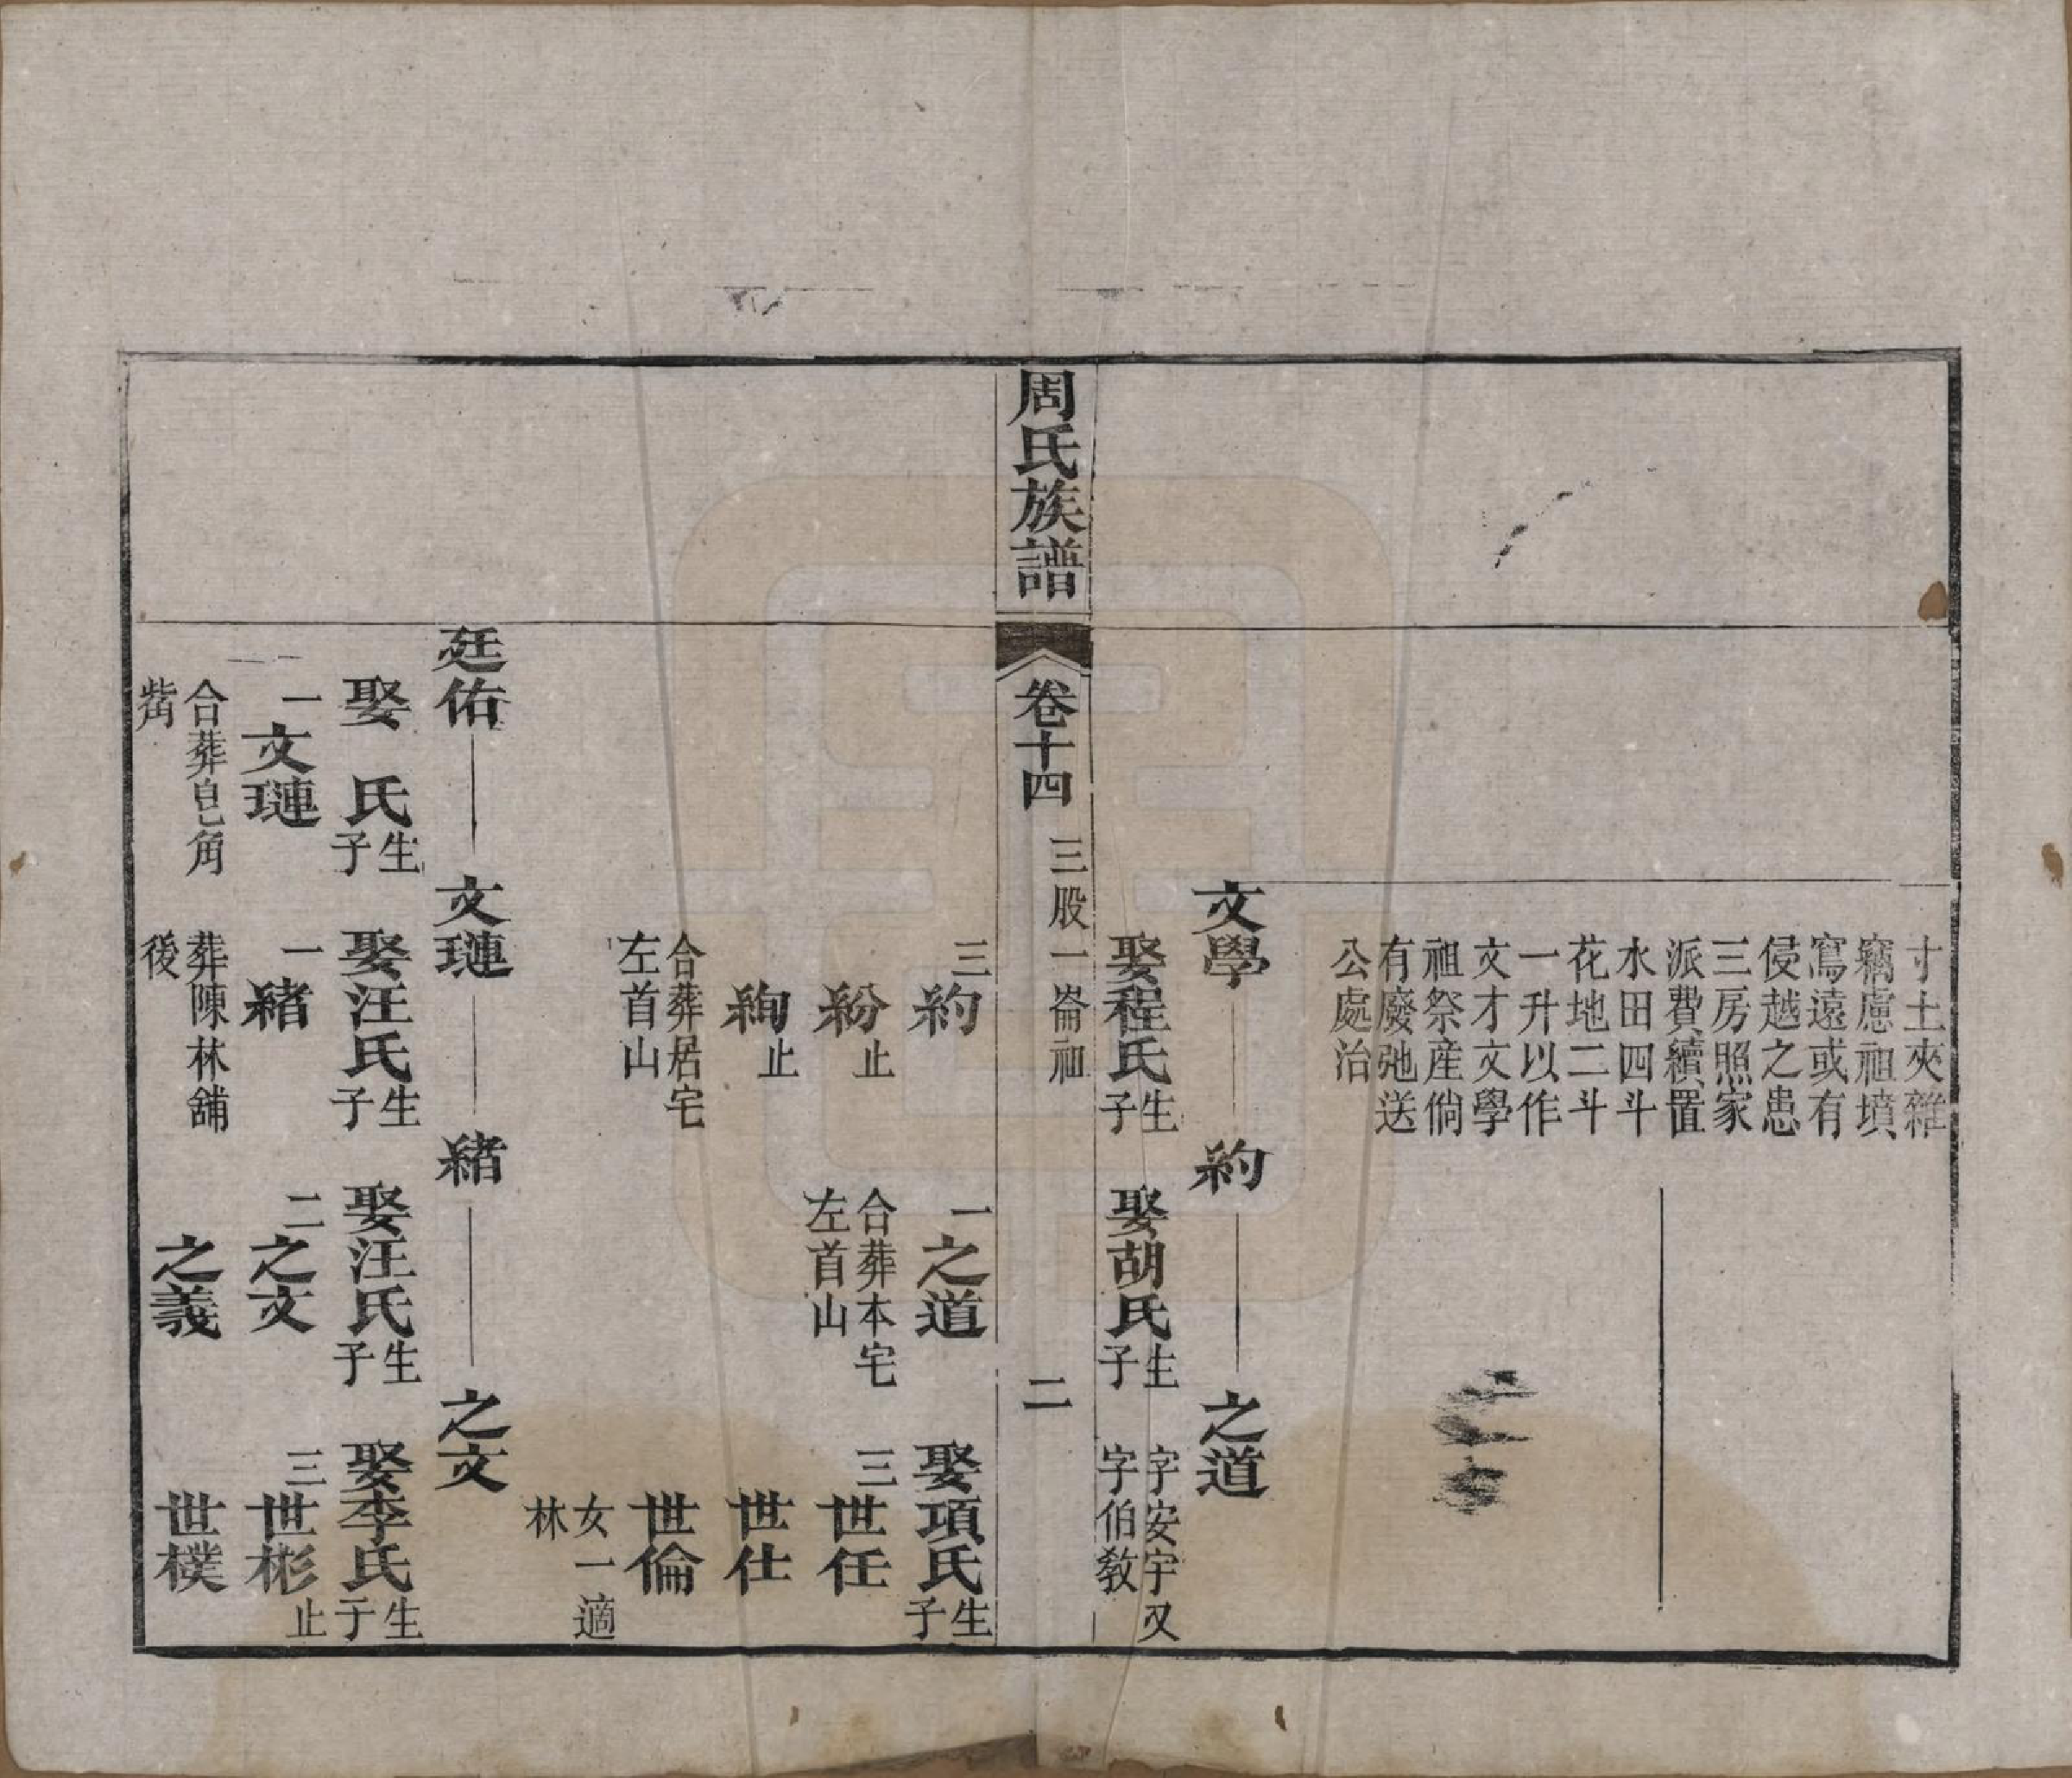 寸土夾雜
竊慮祖墳
寫遠或有
侵越之患
三房照家
派費續置
水田四斗
花地二斗
一升以作
文才文學
祖祭產倘
有廢弛送
公處治
文學 約 之道
娶程氏生子 娶胡氏生子 字安宇又字伯教
周氏族譜 卷十四 三股一崙祖 二
三約 一之道 娶項氏生子
紛止 合葬本宅左首山 三世任
絢止 世仕
合葬居宅左首山 世倫
女一適林
廷佑 文璉 緒 之文
娶 氏生子 娶汪氏生子 娶汪氏生子 娶李氏生于
一文璉 一緒 二之文 三世彬止
合葬皀角嘴 葬陳林舖後 之義 世樸